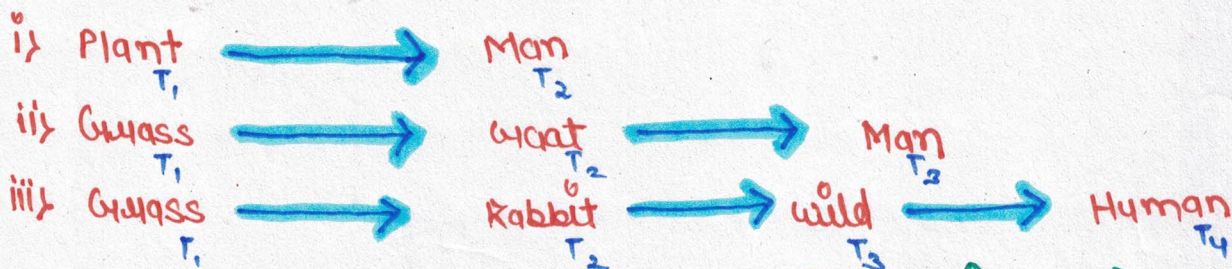 i) Plant T1 → Man T2
ii) Grass T1 → Goat T2 → Man T3
iii) Grass T1 → Rabbit T2 → Wild T3 → Human T4